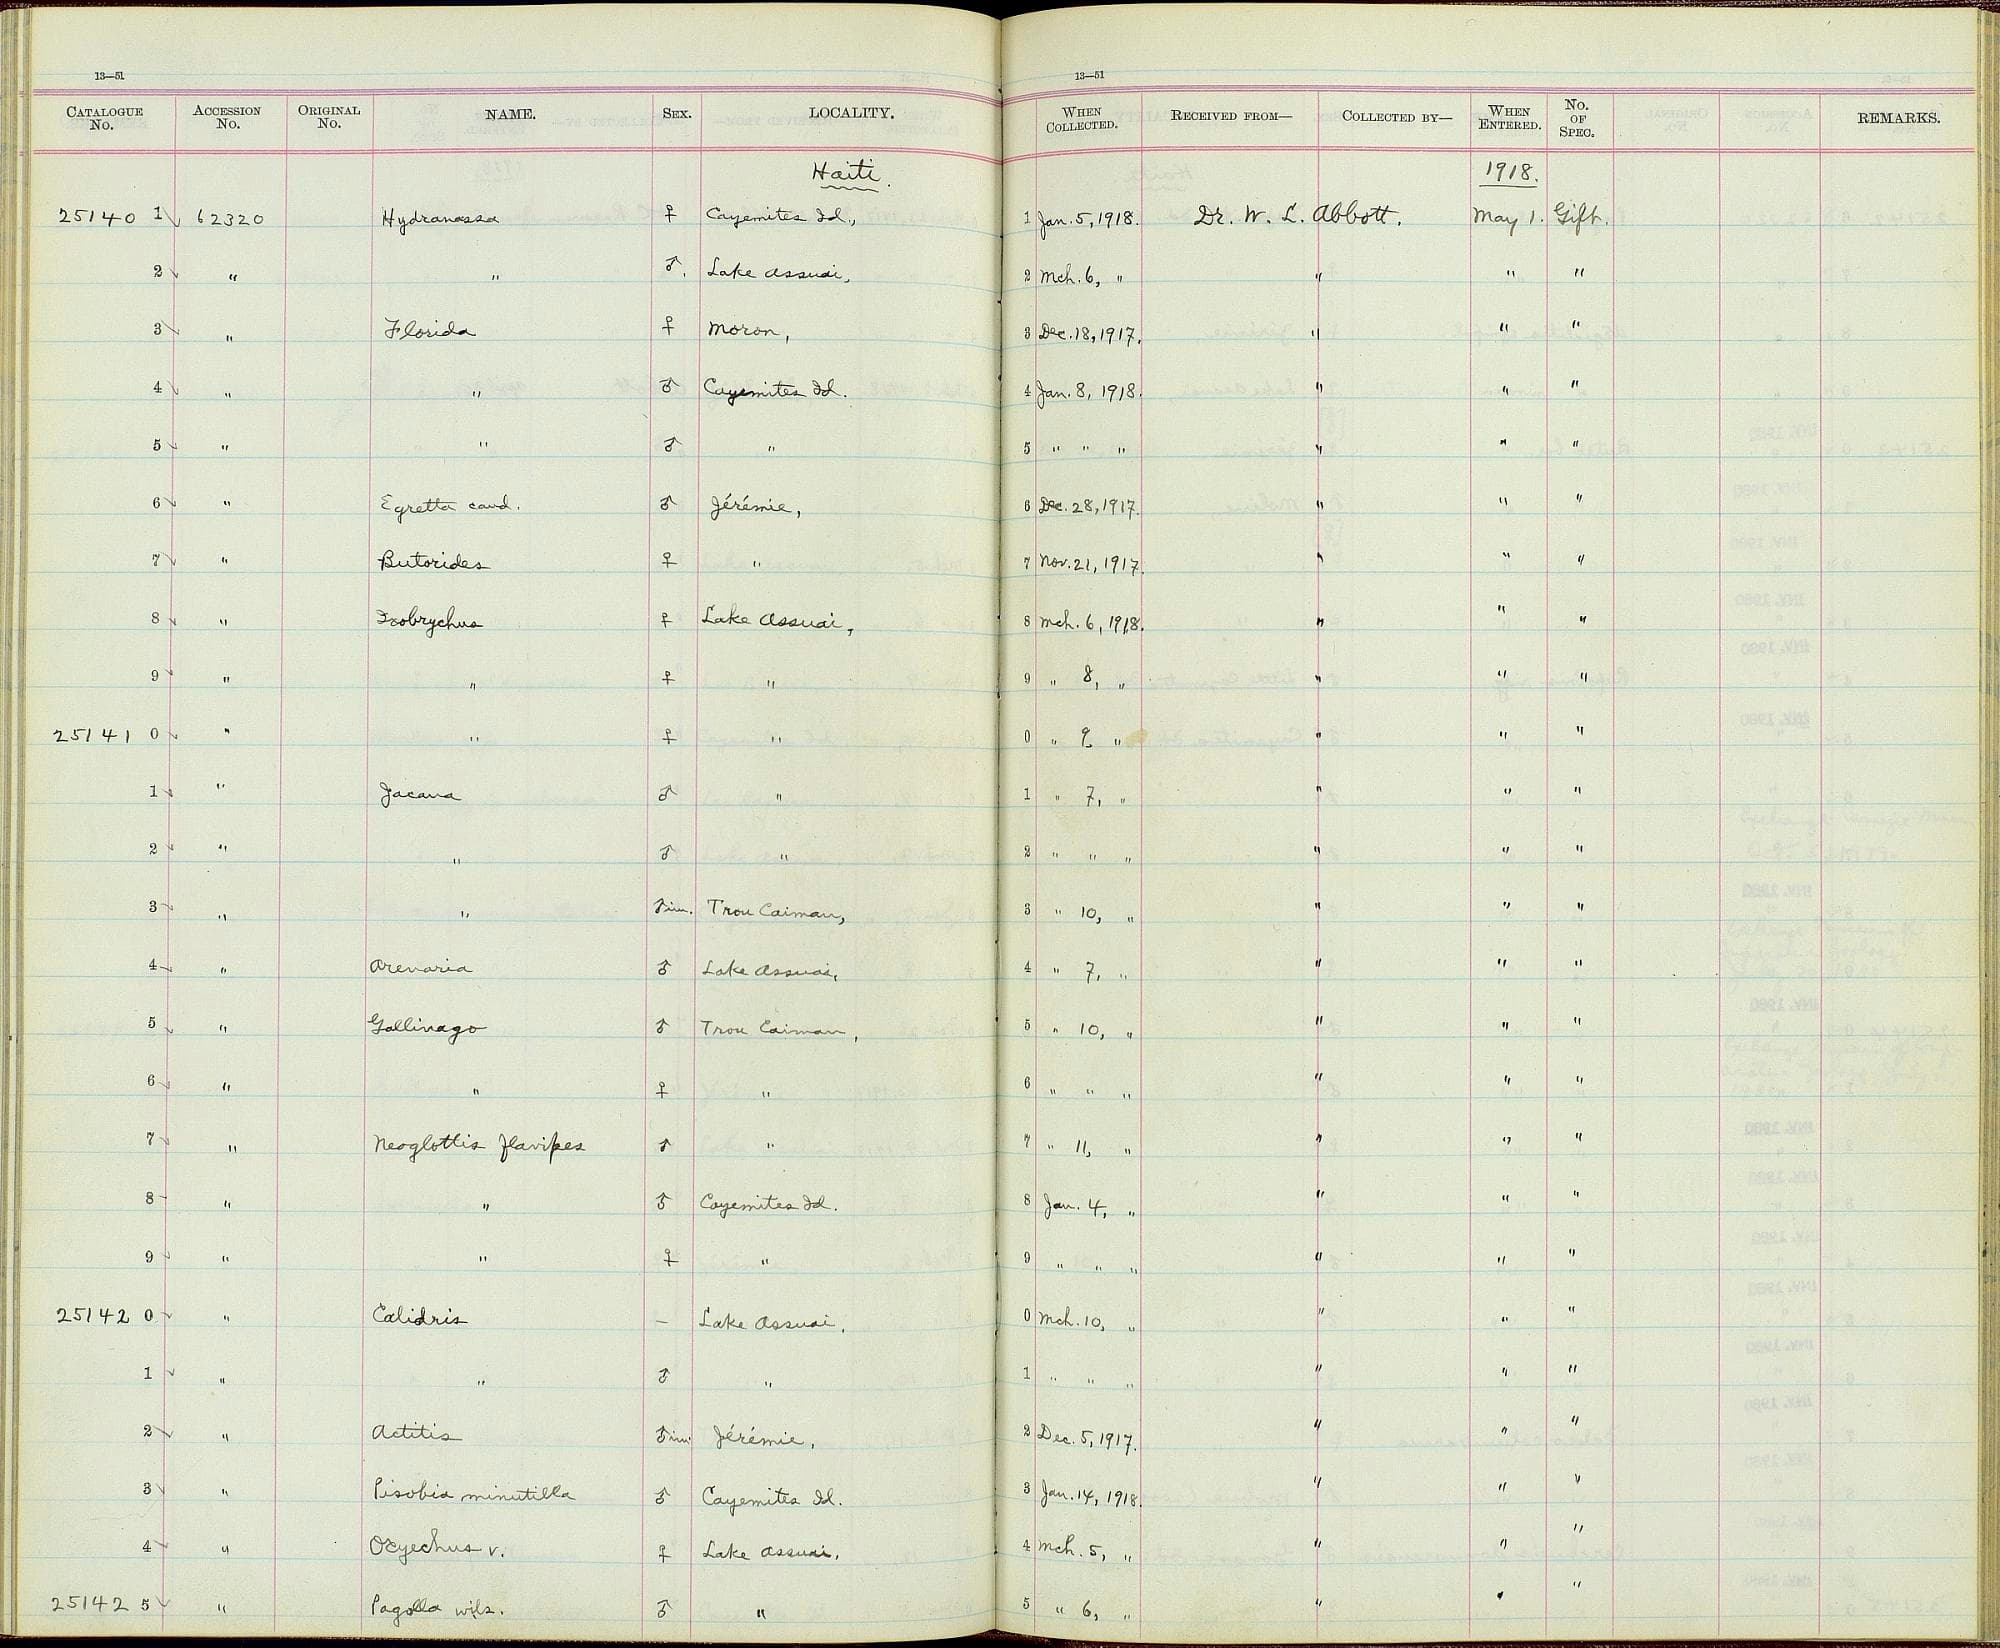 13—51 13—51
CATALOGUE No. ACCESSION No. ORIGINAL No. NAME. SEX. LOCALITY. WHEN COLLECTED. RECEIVED FROM— COLLECTED BY— WHEN ENTERED. No. OF SPEC. REMARKS.
Haiti. 1918.
25140 1 62320 Hydranassa ♀ Cayemites Id., 1 Jan. 5, 1918. Dr. W. L. Abbott. May 1. Gift.
2 " " ♂. Lake Assuai, 2 Mch. 6, " " " "
3 " Florida ♀ Moron, 3 Dec. 18, 1917. " " "
4 " " ♂ Cayemites Id. 4 Jan. 8, 1918. " " "
5 " " ♂ " 5 " " " " " "
6 " Egretta cand. ♂ Jérémie, 6 Dec. 28, 1917. " " "
7 " Butorides ♀ " 7 Nov. 21, 1917. " " "
8 " Ixobrychus ♀ Lake Assuai, 8 Mch. 6, 1918. " " "
9 " " ♀ " 9 " 8, " " " "
25141 0 " " ♀ " 0 " 9, " " " "
1 " Jacana ♂ " 1 " 7, " " " "
2 " " ♂ " 2 " " " " " "
3 " " ♂ im. Trou Caiman, 3 " 10, " " " "
4 " Arenaria ♂ Lake Assuai, 4 " 7, " " " "
5 " Gallinago ♂ Trou Caiman, 5 " 10, " " " "
6 " " ♀ " 6 " " " " " "
7 " Neoglottis flavipes ♂ " 7 " 11, " " " "
8 " " ♂ Cayemites Id. 8 Jan. 4, " " " "
9 " " ♀ " 9 " " " " " "
25142 0 " Calidris — Lake Assuai, 0 Mch. 10, " " " "
1 " " ♂ " 1 " " " " " "
2 " Actitis ♂ im. Jérémie, 2 Dec. 5, 1917. " " "
3 " Pisobia minutilla ♂ Cayemites Id. 3 Jan. 14, 1918. " " "
4 " Oxyechus v. ♀ Lake Assuai, 4 Mch. 5, " " " "
25142 5 " Pagolla wils. ♂ " 5 " 6, " " " "